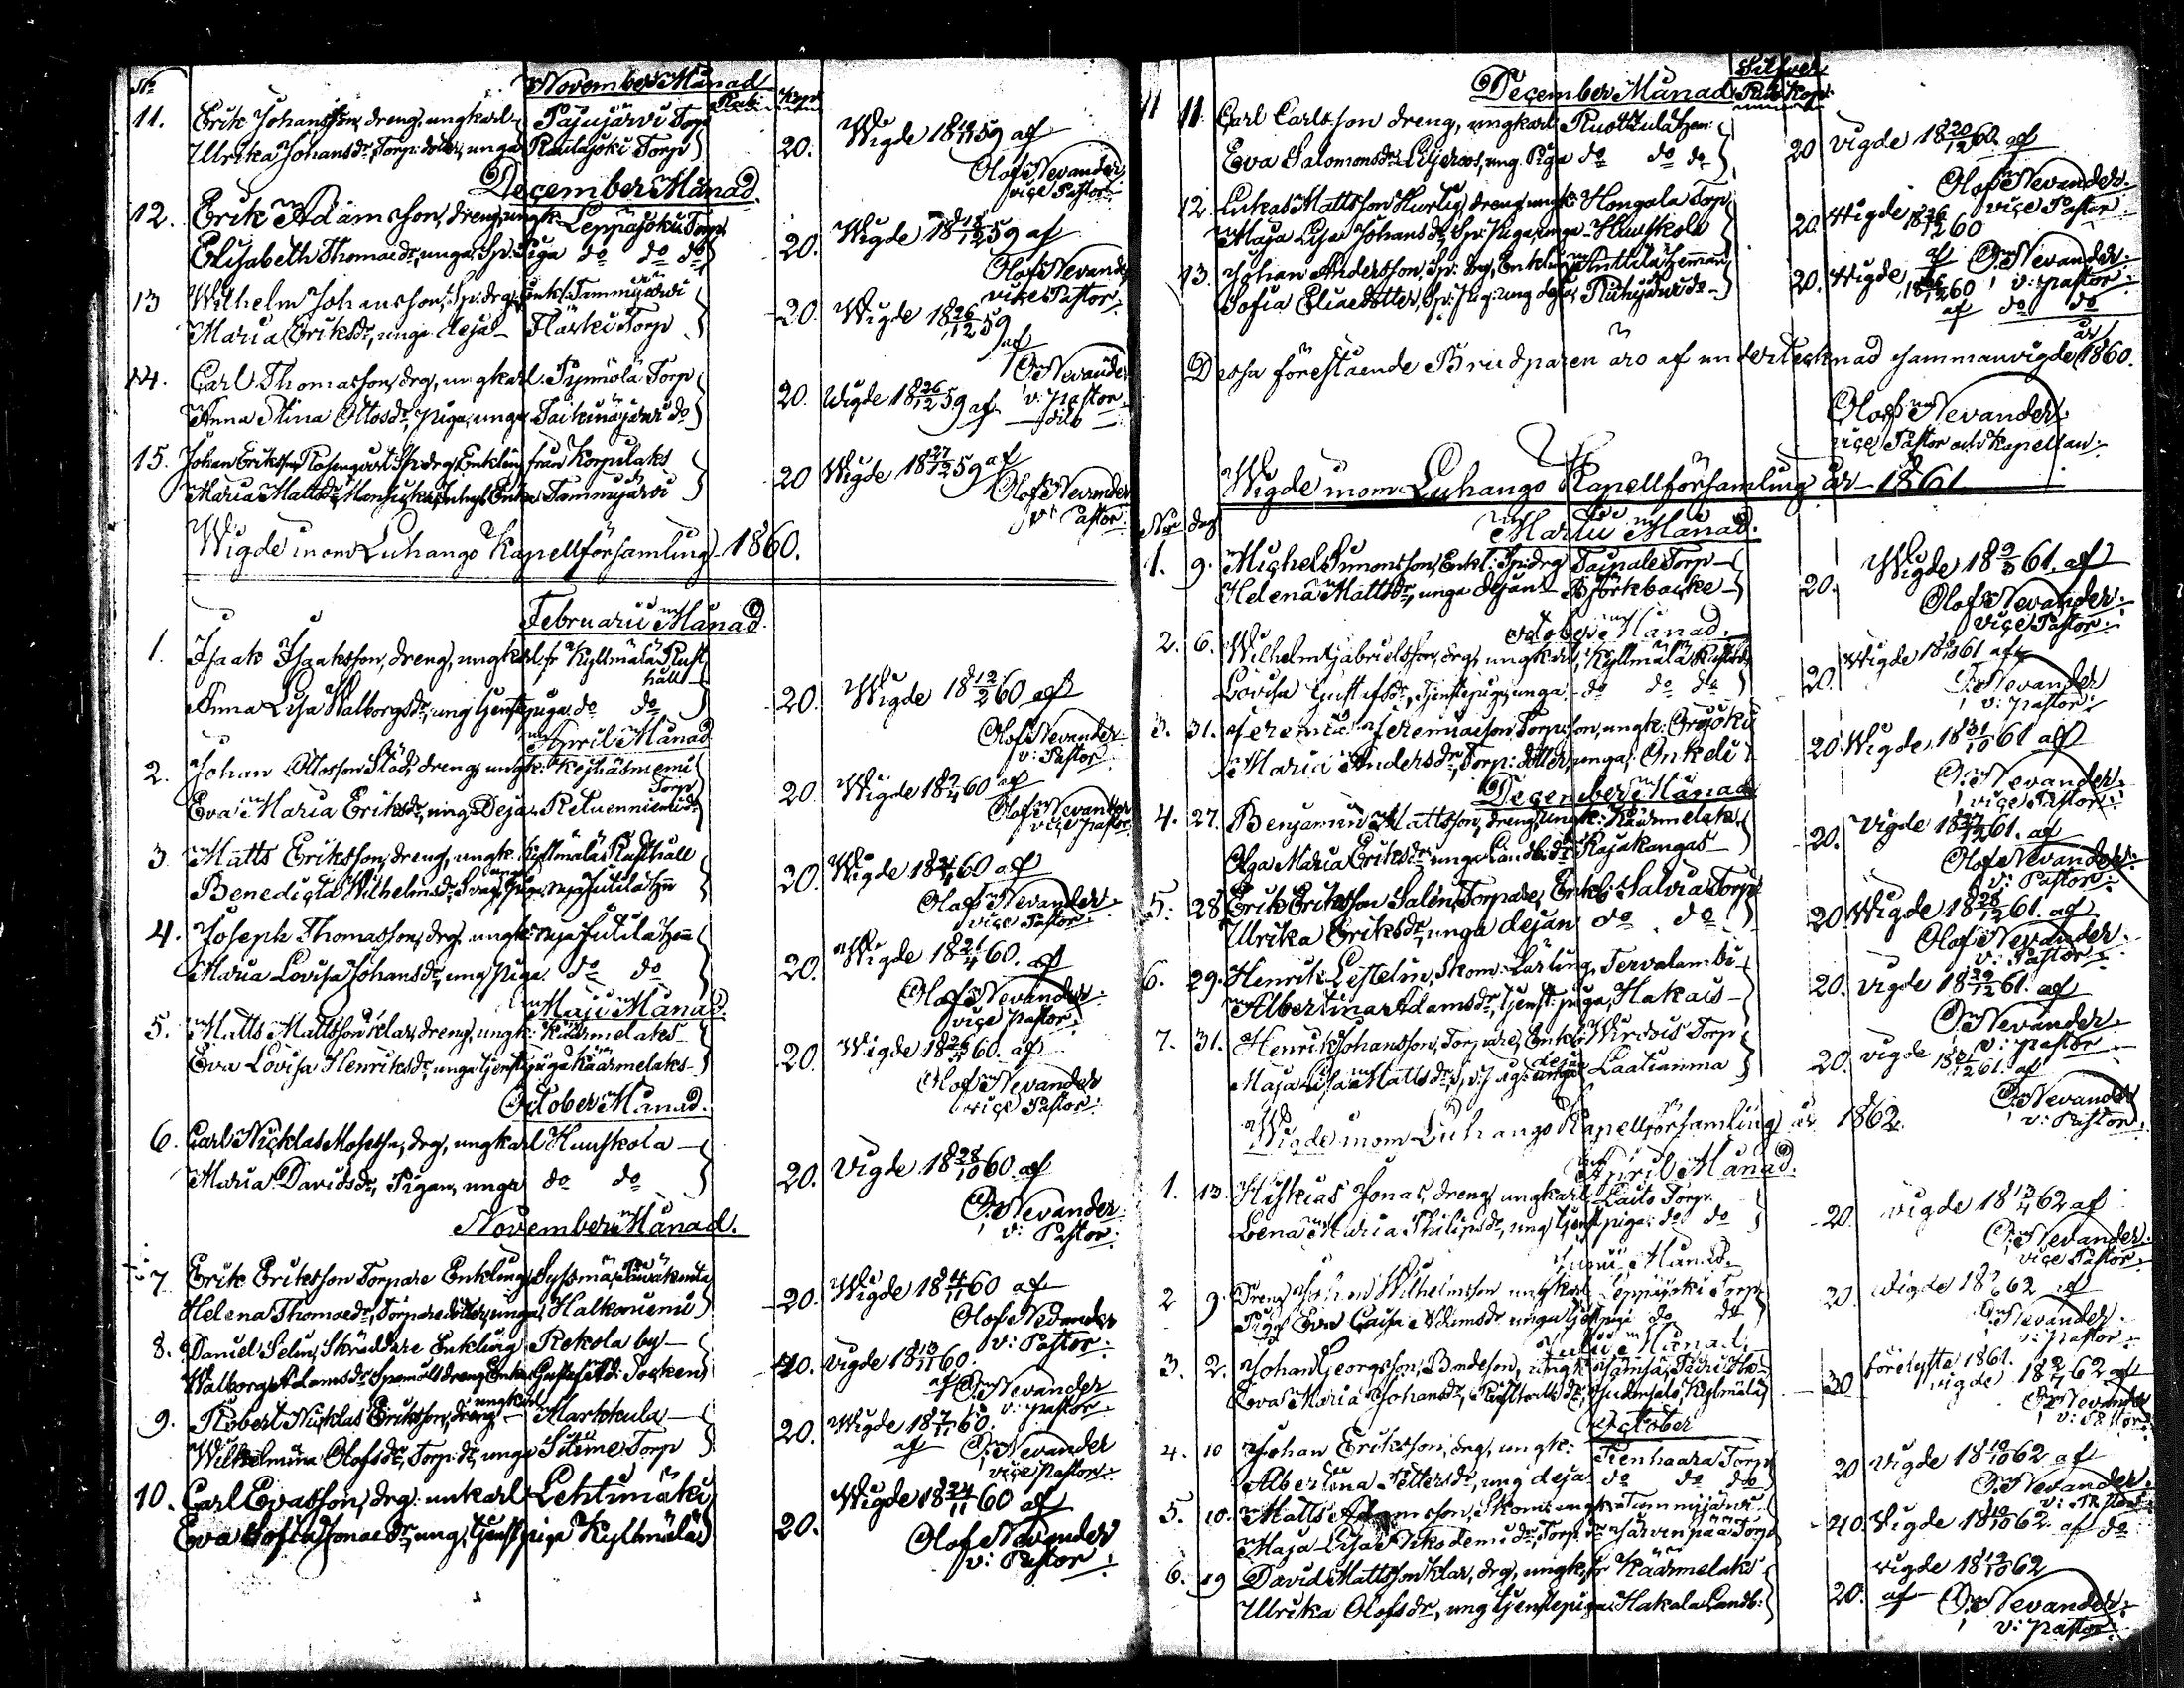 No
November Månad
Rub. Kop.
11. Erik Johansson, dreng, ungkarl Pajujärvi Torp
Ulrika Johansdr, Torp: dotter, unga Rautajoki Torp 20. Wigde 18 59 af
Olof Nevander
vice Pastor
December Månad
12. Erik Adamsson, dreng, ungk. Leppäjoki Torp
Elisabeth Thomaedr, unga, Sp: Piga do do do 20. Wigde 18 18/12 59 af
Olof Nevander
vice Pastor
13 Wilhelm Johansson, Sp: drg, Enkl: Tammijärvi
Maria Eriksdr, unga deja Torp 20. Wigde 18 26/12 59
af
O. Nevander
v: pastor
14. Carl Thomasson, drg, ungkarl Torp
Anna Stina Ottosdr, piga, unga do 20. Wigde 18 26/12 59 af dito
15. Johan Eriksson Sp: drg Enkling från Korpilaks
Maria Mattsdr Enka Tammijärvi 20 Wigde 18 27/12 59 af
Olof Nevander
v: Pastor
Wigde inom Luhango Kapellförsamling 1860.
Februarii Månad
1. Isaak Isaaksson, dreng, ungkarl, fr Kyllmälä Rust
håll
Anna Lisa Walborgsdr, ung tjenstepiga do do 20. Wigde 18 12/2 60 af
Olof Nevander
v: Pastor
April Månad
2. Johan Ottosson Städ, dreng, ungk:
Torp
Eva Maria Eriksdr, ung Deja do 20. Wigde 18 9/4 60 af
Olof Nevander
vice pastor
3. Matts Eriksson, dreng, ungk. Kyllmälä Rusthåll
Benedicta Wilhelmsdr, unga piga, nya Juttila Hn 20. Wigde 18 60 af
Olof Nevander
vice Pastor
4. Joseph Thomasson, drg, ungk: nya Juttila Hn
Maria Lovisa Johansdr, ung piga do do 20. Wigde 18 21/4 60. af
Olof Nevander
vice pastor
Maji Månad
5. Matts Mattsson Klar, dreng, ungk: Käärmelaks
Eva Lovisa Henriksdr, unga tjenstepiga Käärmelaks 20. Wigde 18 26/5 60. af
Olof Nevander
vice Pastor
October Månad
6. Carl Nicklas Mosesson, drg, ungkarl Huuskola
Maria Davidsdr, Pigan, unga do do 20. Vigde 18 28/10 60 af
O. Nevander
v: Pastor
November Månad.
7 Erik Eriksson Torpare Enkling, Sysmä
Helena Thomaedr, Torpare dotter, unga Halkoniemi 20. Wigde 18 4/11 60 af
Olof Nevander
v: Pastor
8. Daniel Selin, Skräddare Enkling Rekola by
Walborg Adamsdr Enka Gustaf Ad: Socken 40. Vigde 18 13/11 60.
af O. Nevander
v: pastor
9. Robert Nicklas Eriksson, dreng ungkarl Markkula
Wilhelmina Olofsdr, Torp: dr, unga Sitime Torp 20. Wigde 18 60.
af O. Nevander
vice pastor
10. Carl Evasson, drg: unkarl Lehtimäki
Eva Sofia Jonaedr, ung, tjenstpiga Kyllmälä 20. Wigde 18 24/11 60 af
Olof Nevander
v: Pastor
December Månad
Silfver
Rub Kop
11 11. Carl Carlsson dreng, ungkarl Ruottula Hem:
Eva Salomonsdr Liljeroos, ung. Piga do do do 20 vigde 18 20/12 60. af
Olof Nevander
vice Pastor
12 Lukas Mattsson Hurtig, dreng, ungk: Hongola Torp
Maja Lisa Johansdr, Sp: piga, unga Huuskola 20 Wigde 18 26/12 60
af O. Nevander
v: pastor
13. Johan Andersson, Sp: drg, Enkling Anttila Heman
Sofia Eliaedotter, Sp: Pig: ung deja, do 20. Wigde 18 26/12 60
af do do
Dessa förestående Brudparen äro af undertecknad sammanvigde år 1860.
Olof Nevander
vice Pastor och Kapellan
Wigde inom Luhango Kapellförsamling år 1861
No dag
Martii Månad.
1. 9. Michel Simonsson, Enkl: Sp: drg Taipale Torp
Helena Mattsdr, unga dejan Björkbacke 20. Wigde 18 9/3 61. af
Olof Nevander
vice Pastor
October Månad.
2. 6. Wilhelm Gabrielsson, drg, ungkarl, Kyllmälä Rusthåll
Lovisa Gustafsdr, tjenstepiga, unga do do do 20. Wigde 18 6/10 61 af
O. Nevander
v: pastor
3. 31. Jeremias Jeremiaesson, Torp: son, ungk: Orijoki
Maria Andersdr, Torp: dotter, unga: Onkeli 20 Wigde 18 31/10 61 af
O. Nevander
vice Pastor
December Månad
4. 27. Benjamin Mattsson, dreng, ungk: Käärmelaks
Olga Maria Eriksdr unga Landb: dr Rajakangas 20. Vigde 18 27/12 61. af
Olof Nevander
v: Pastor
5. 28 Erik Eriksson Salen, Torpare, Enkl: Salvia Torp
Ulrika Eriksdr, unga dejan do do 20 Wigde 18 28/12 61. af
Olof Nevander
v: Pastor
6. 29. Henrik Lestelin, Skom: Lärling, Tervalambi
Albertina Adamsdr, tjenst: piga, Hakais 20. Vigde 18 29/12 61. af
O. Nevander
v: pastor
7. 31. Henrik Johansson, Torpare, Enkl: Wirvois Torp
Maja Lisa Mattsdr, Sp: pig: deja Laatianma 20. vigde 18 31/12 61. af
O. Nevander
v: Pastor
Wigde inom Luhango Kapellförsamling år 1862
April Månad.
1. 13. Hiskias Jonas, dreng ungkarl Lailo Torp.
Lena Maria Philipsdr, ung tjenstpiga: do do 20. vigde 18 13/4 62 af
O. Nevander
vice Pastor
Junii Månad.
2 9. Dreng Johan Wilhelmsson ungkarl Leppäjoki Torp
Piga Eva Caisa Adamsdr unga tjenstpiga do do 20. vigde 18 62 af
O. Nevander
v: pastor
Julii Månad.
3. 2. Johan Georgsson, Bondeson, ungk: Jämsä,
Eva Maria Johansdr, Rusthålls dr, Judinsalo, Kyllmälä 30 förelyste 1861.
vigde 18 2/7 62 af
O. Nevander
v: Pastor
October
4. 10 Johan Eriksson, drg, ungk: Tienhaara Torp
Albertina Pettersdr, ung deja do do do 20 vigde 18 10/10 62 af
O. Nevander
v: Pastor
5. 10. Matts Adamsson, Skom: ungk: Tammijärvi
Maja Lisa Nikodemi dr, Torp: dr Järvenpää Torp 40. Vigde 18 10/10 62 af do
6. 19 David Mattsson Klar, drg, ungk, fr Käärmelaks
Ulrika Olofsdr, ung tjenstepiga: Hakala Landb: 20. vigde 18 19/10 62
af O. Nevander
v: pastor